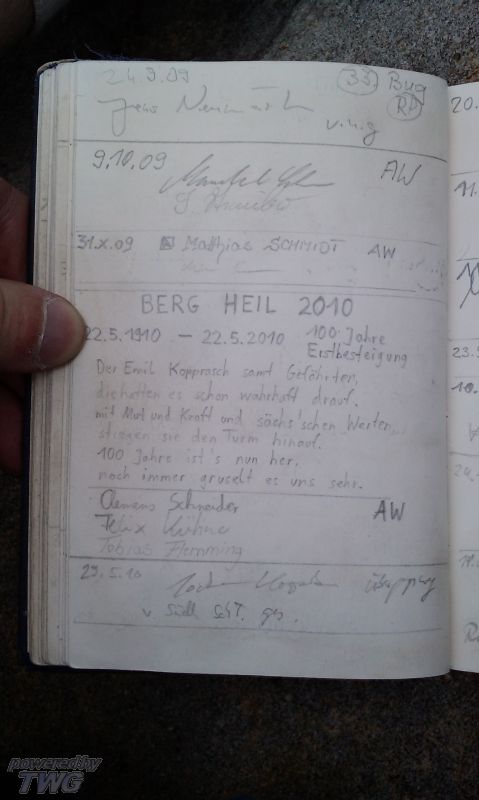 24.9.09 33. Bug
RP
9.10.09 AW
31.X.09 Matthias SCHMIDT AW
BERG HEIL 2010
22.5.1910 – 22.5.2010 100 Jahre
Erstbesteigung
Der Emil Kopprasch samt Gefährten,
die hatten es schon wahrhaft drauf.
mit Mut und Kraft und sächs'schen Werten,
stiegen sie den Turm hinauf.
100 Jahre ist's nun her,
noch immer gruselt es uns sehr.
Clemens Schneider AW
Felix Kühne
Tobias Flemming
29.5.10
v. Südl.
20.
11.
23.
10.
24.
powered by
TWG